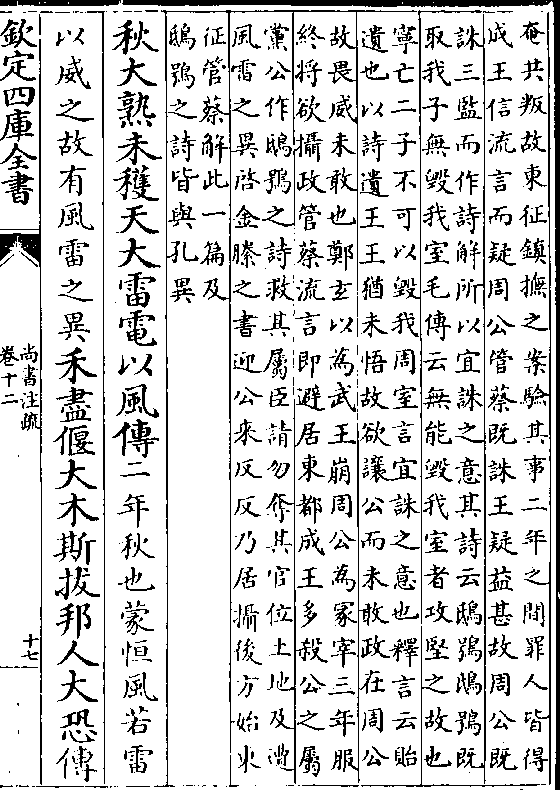 奄共叛故東征鎮撫之案驗其事二年之間罪人皆得
成王信流言而疑周公管蔡既誅王疑益甚故周公既
誅三監而作詩解所以宜誅之意其詩云鴟鴞鴟鴞既
取我子無毀我室毛傳云無能毀我室者攻堅之故也
寧亡二子不可以毀我周室言宜誅之意也釋言云貽
遺也以詩遺王王猶未悟故欲讓公而未敢政在周公
故畏威未敢也鄭玄以為武王崩周公為冢宰三年服
終將欲攝政管蔡流言即避居東都成王多殺公之屬
黨公作鴟鴞之詩救其屬臣請勿奪其官位土地及遭
風雷之異啓金縢之書迎公來反反乃居攝後方始東
征管蔡解此一篇及
鴟鴞之詩皆與孔異
秋大熟未穫天大雷電以風傳二年秋也蒙恒風若雷
以威之故有風雷之異禾盡偃大木斯拔邦人大恐傳
欽定四庫全書
尚書注疏
卷十二
十七